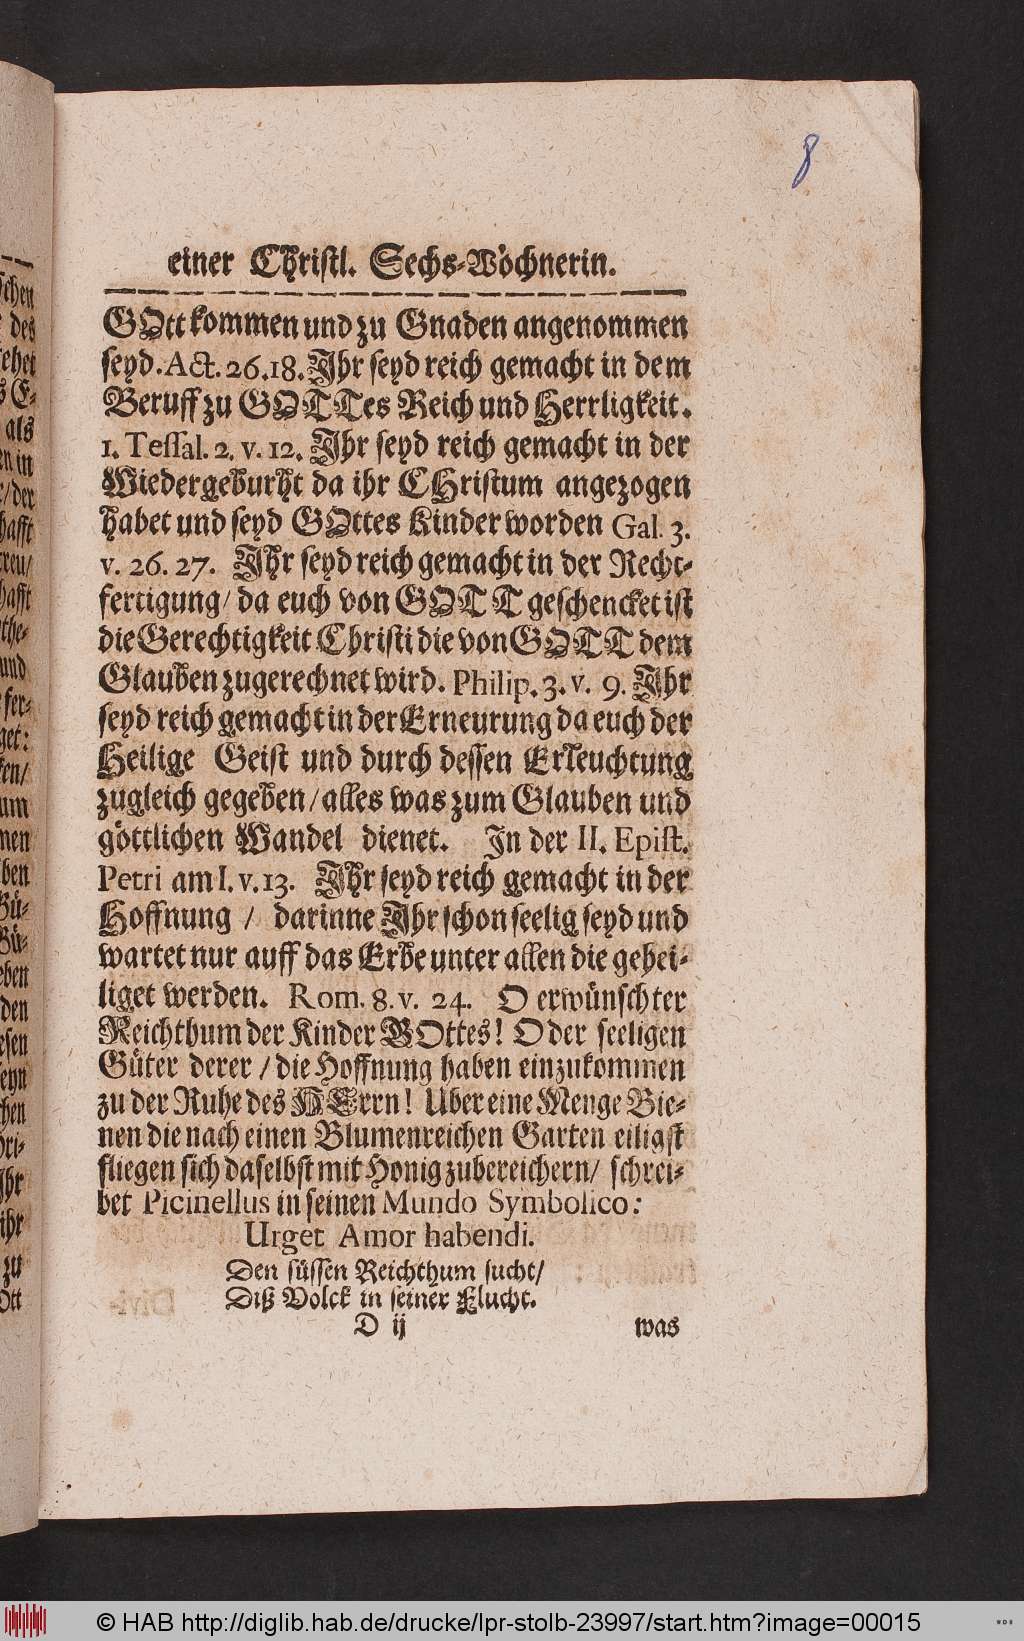 8
einer Christl. Sechs-Wöchnerin.
GOtt kommen und zu Gnaden angenommen
seyd. Act. 26.18. Ihr seyd reich gemacht in dem
Beruff zu GOTTes Reich und Herrligkeit.
1. Tessal. 2. v. 12. Ihr seyd reich gemacht in der
Wiedergeburht da ihr CHristum angezogen
habet und seyd GOttes Kinder worden Gal. 3.
v. 26. 27. Ihr seyd reich gemacht in der Recht-
fertigung/ da euch von GOTT geschencket ist
die Gerechtigkeit Christi die von GOTT dem
Glauben zugerechnet wird. Philip. 3. v. 9. Ihr
seyd reich gemacht in der Erneurung da euch der
Heilige Geist und durch dessen Erleuchtung
zugleich gegeben/ alles was zum Glauben und
göttlichen Wandel dienet. In der II. Epist.
Petri am I. v. 13. Ihr seyd reich gemacht in der
Hoffnung / darinne Ihr schon seelig seyd und
wartet nur auff das Erbe unter allen die gehei-
liget werden. Rom. 8. v. 24. O erwünschter
Reichthum der Kinder GOttes! O der seeligen
Güter derer / die Hoffnung haben einzukommen
zu der Ruhe des HErrn! Uber eine Menge Bie-
nen die nach einen Blumenreichen Garten eiligst
fliegen sich daselbst mit Honig zubereichern/ schrei-
bet Picinellus in seinen Mundo Symbolico:
Urget Amor habendi.
Den süssen Reichthum sucht/
Diß Volck in seiner Flucht.
D ij was
© HAB http://diglib.hab.de/drucke/lpr-stolb-23997/start.htm?image=00015